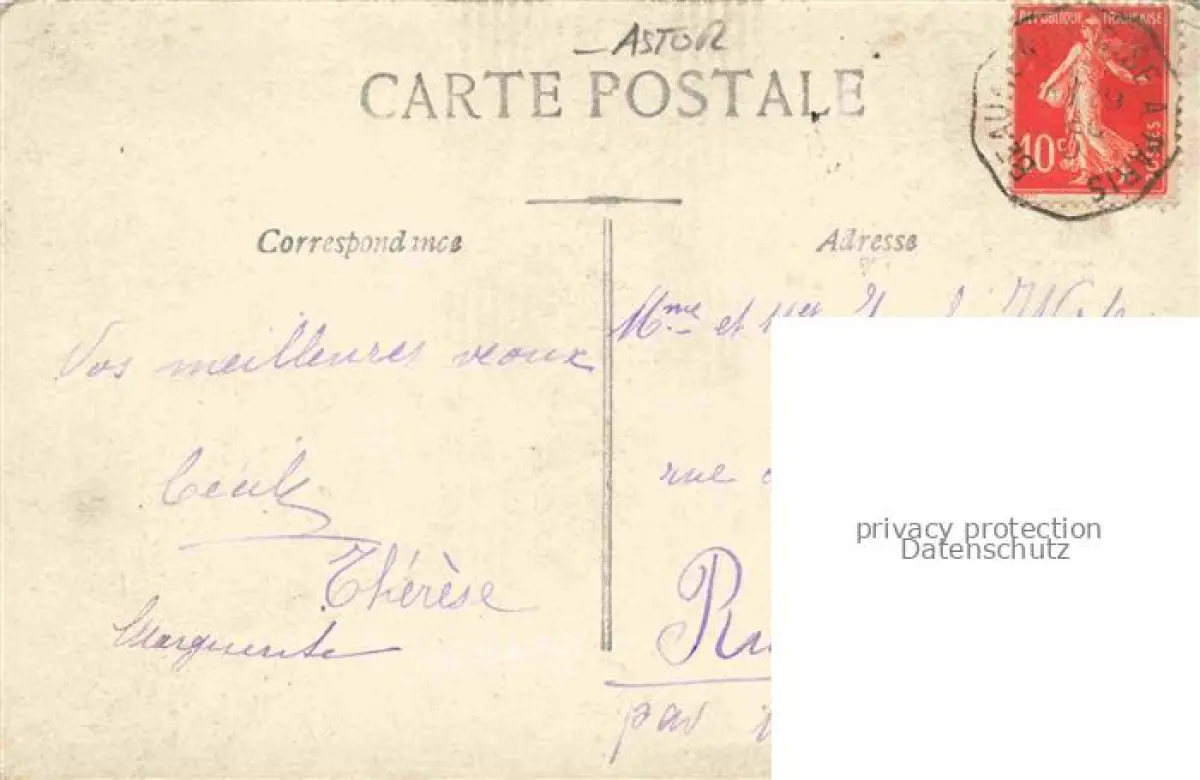 ASTOR
CARTE POSTALE
REPUBLIQUE FRANÇAISE
10 c
A PARIS
Correspondance
Adresse
Vos meilleures vœux
Cécile
Thérèse
Marguerite
Mme et
rue
par
privacy protection
Datenschutz